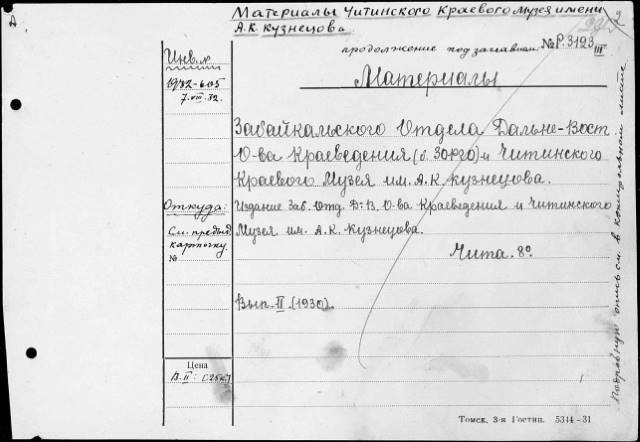 А
Материалы Читинского Краевого Музея имени
А.К. Кузнецова
2
продолжение под заглавием №Р.3193
III
Инв. №
1932-605
7.VIII.32.
Материалы
Забайкальского Отдела Дальне-Вост
О-ва Краеведения (б. ЗОРГО) и Читинского
Краевого Музея им. А.К. Кузнецова.
Откуда:
Издание Заб. Отд. Д.-В. О-ва Краеведения и Читинского
См. предыд.
Музея им. А.К. Кузнецова.
карточку.
№
Чита. 8º.
Вып. II. (1930).
Цена
В.II: (25к.)
Подробную опись см. в контрольном листе
Томск, 3-я Гостип. 5314-31